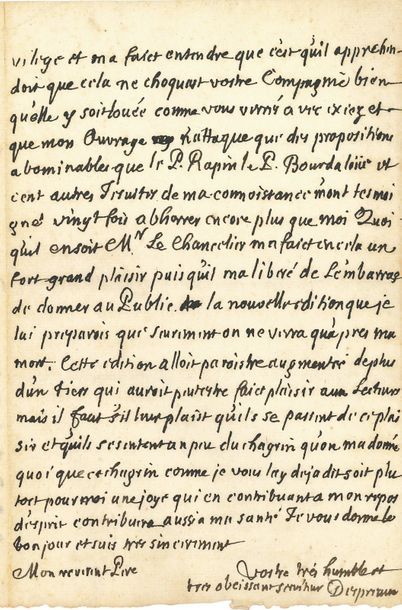 vilege et m'a faict entendre que c'est qu'il apprehen
doit que cela ne choquast vostre Compagnie bien
qu'elle y soit louée comme vous verrés avec excez et
que mon Ouvrage n'attaque que des propositions
abominables que le P. Rapin le P. Bourdaloüe et
cent autres Jesuites de ma connoissance m'ont tesmoi
gné vingt fois abhorrer encore plus que moi Quoi
qu'il en soit Mr Le Chancelier m'a faict en cela un
fort grand plaisir puisqu'il m'a liberé de l'embarras
de donner au Public la nouvelle edition que je
lui preparois que seurement on ne verra qu'apres ma
mort. Cette edition alloit paroistre augmentée de plus
d'un tiers qui auroit peutestre faict plaisir aux Lecteurs
mais il faut s'il leur plaist qu'ils se passent de ce plai
sir et qu'ils se sentent un peu du chagrin qu'on m'a donné
quoi que ce chagrin comme je vous l'ay deja dit soit plu
tost pour moi une joye qui en contribuant a mon repos
d'esprit contribuera aussi a ma santé Je vous donne le
bonjour et suis tres sincerement
Mon reverent Pere
Vostre tres humble et
tres obeissant serviteur Despreaux